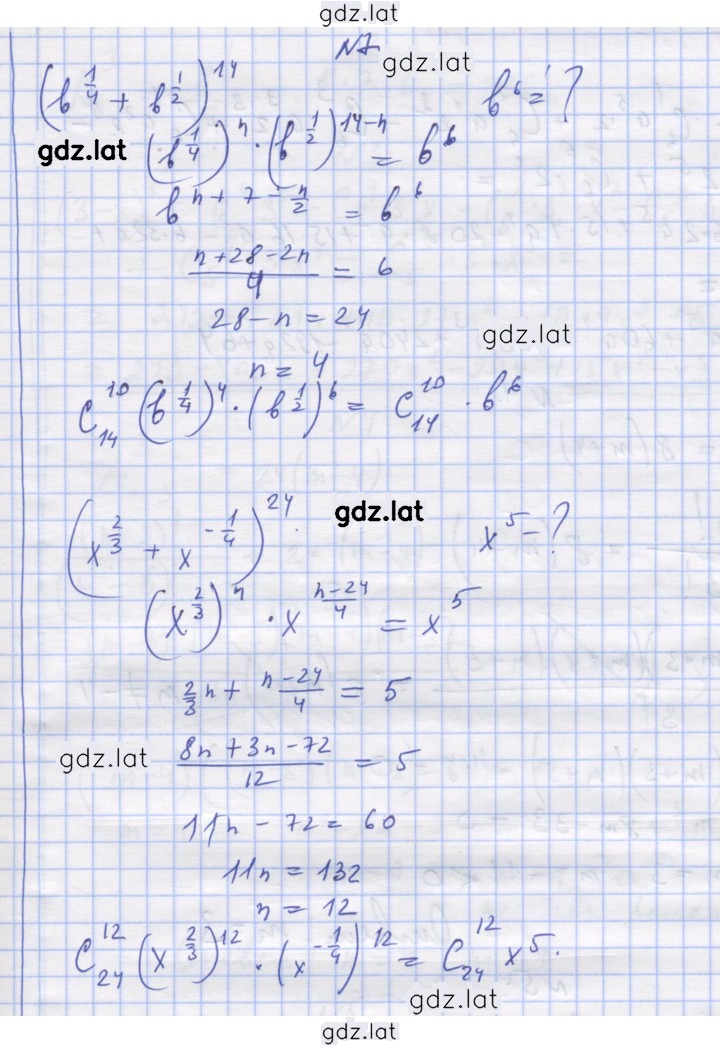 gdz.lat
N7
gdz.lat
(b^{1/4} + b^{1/2})^{14} b^6 = ?
gdz.lat
(b^{1/4})^n · (b^{1/2})^{14-n} = b^6
b^{n + 7 - n/2} = b^6
(n + 28 - 2n)/4 = 6
28 - n = 24
gdz.lat
n = 4
C_{14}^{10} (b^{1/4})^4 · (b^{1/2})^6 = C_{14}^{10} · b^6
gdz.lat
(x^{2/3} + x^{-1/4})^{24} x^5 - ?
(x^{2/3})^n · x^{(n-24)/4} = x^5
2/3 n + (n-24)/4 = 5
gdz.lat
(8n + 3n - 72)/12 = 5
11n - 72 = 60
11n = 132
n = 12
C_{24}^{12} (x^{2/3})^{12} · (x^{-1/4})^{12} = C_{24}^{12} x^5.
gdz.lat
gdz.lat